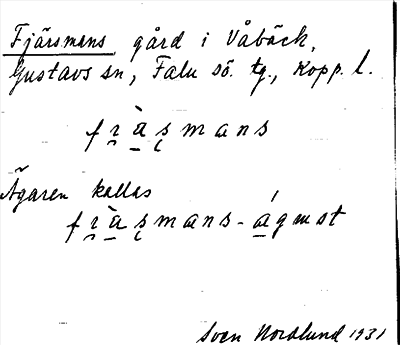 Fjärsmans gård i Våbäck,
Gustavs sn, Falu sö. tg., Kopp. l.
fɿ̀ạsmans
Ägaren kallas
fɿ̀ạsmans-águst
Sven Nordlund 1931